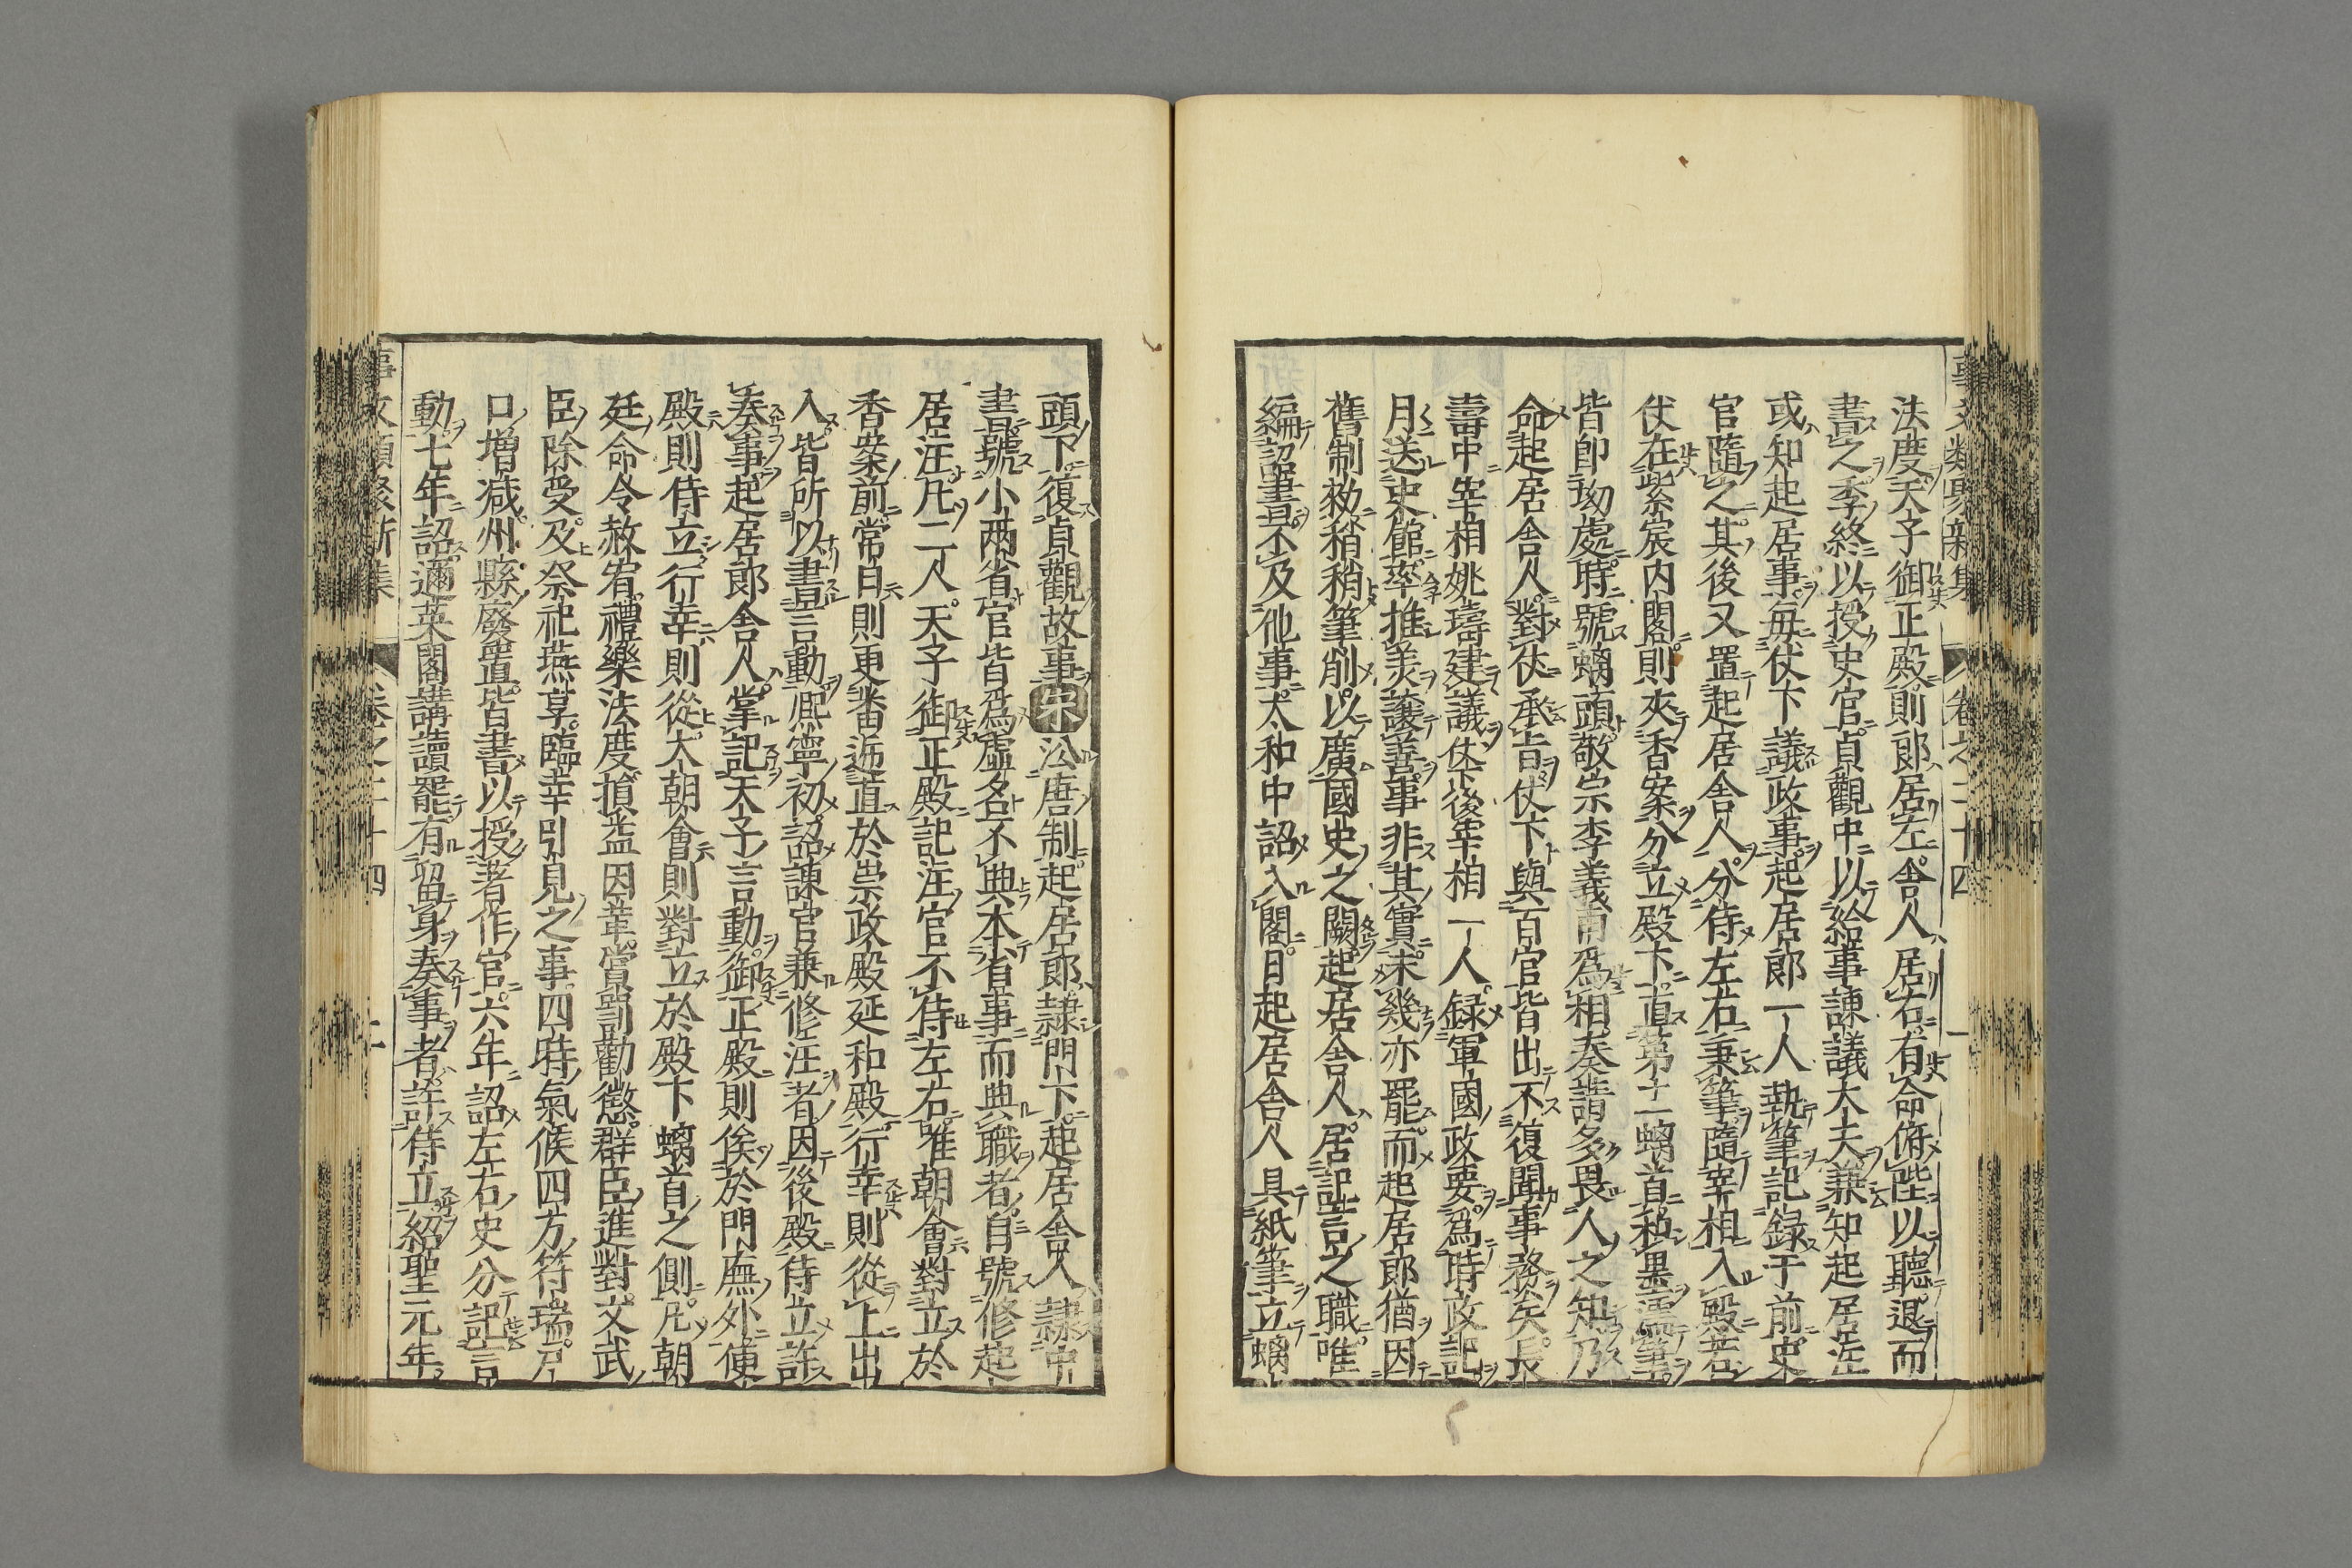 法度天子御正殿則郎居左舎人居右有命俯陛以聽退而
書之季終以授史官貞觀中以給事諫議大夫兼知起居注
或知起居事毎仗下議政事起居郎一人執筆記録于前史
官隨之其後又置起居舎人分侍左右秉筆隨宰相入殿若
仗在紫宸内閣則夾香案分立殿下直第二螭首和墨濡筆
皆即坳處時號螭頭敬宗李義甫爲相奏請多畏人之知乃
命起居舎人對仗承旨仗下與百官皆出不復聞事務矣長
壽中宰相姚璹建議仗下後宰相一人録軍國政要爲時政記
月送史館率推美讓善事非其實未幾亦罷而起居郎猶因
舊制敕稍稍筆削以廣國史之闕起居舎人居記言之職唯
編詔書不及他事太和中詔入閣日起居舎人具紙筆立螭
頭下復貞觀故事宋沿唐制起居郎隷門下起居舎人隷中
書號小兩省官皆爲虛名不典本省事而典職者自號修起
居注凡二人天子御正殿記注官不侍左右唯朝會對立於
香案前常日則更番迊直於崇政殿延和殿行幸則從上出
入皆所以書言動熈寧初詔諫官兼修注者因後殿侍立許
奏事起居郎舎人掌記天子言動御正殿則俟於門廡外便
殿則侍立行幸則從大朝會則對立於殿下螭首之側凡朝
廷命令赦宥禮樂法度損益因革賞罰勸懲群臣進對文武
臣除受及祭祀燕享臨幸引見之事四時氣候四方符瑞戸
口增減州縣廢置皆書以授著作官六年詔左右史分記言
動七年詔邇英閣講讀罷有留身奏事者許侍立紹聖元年